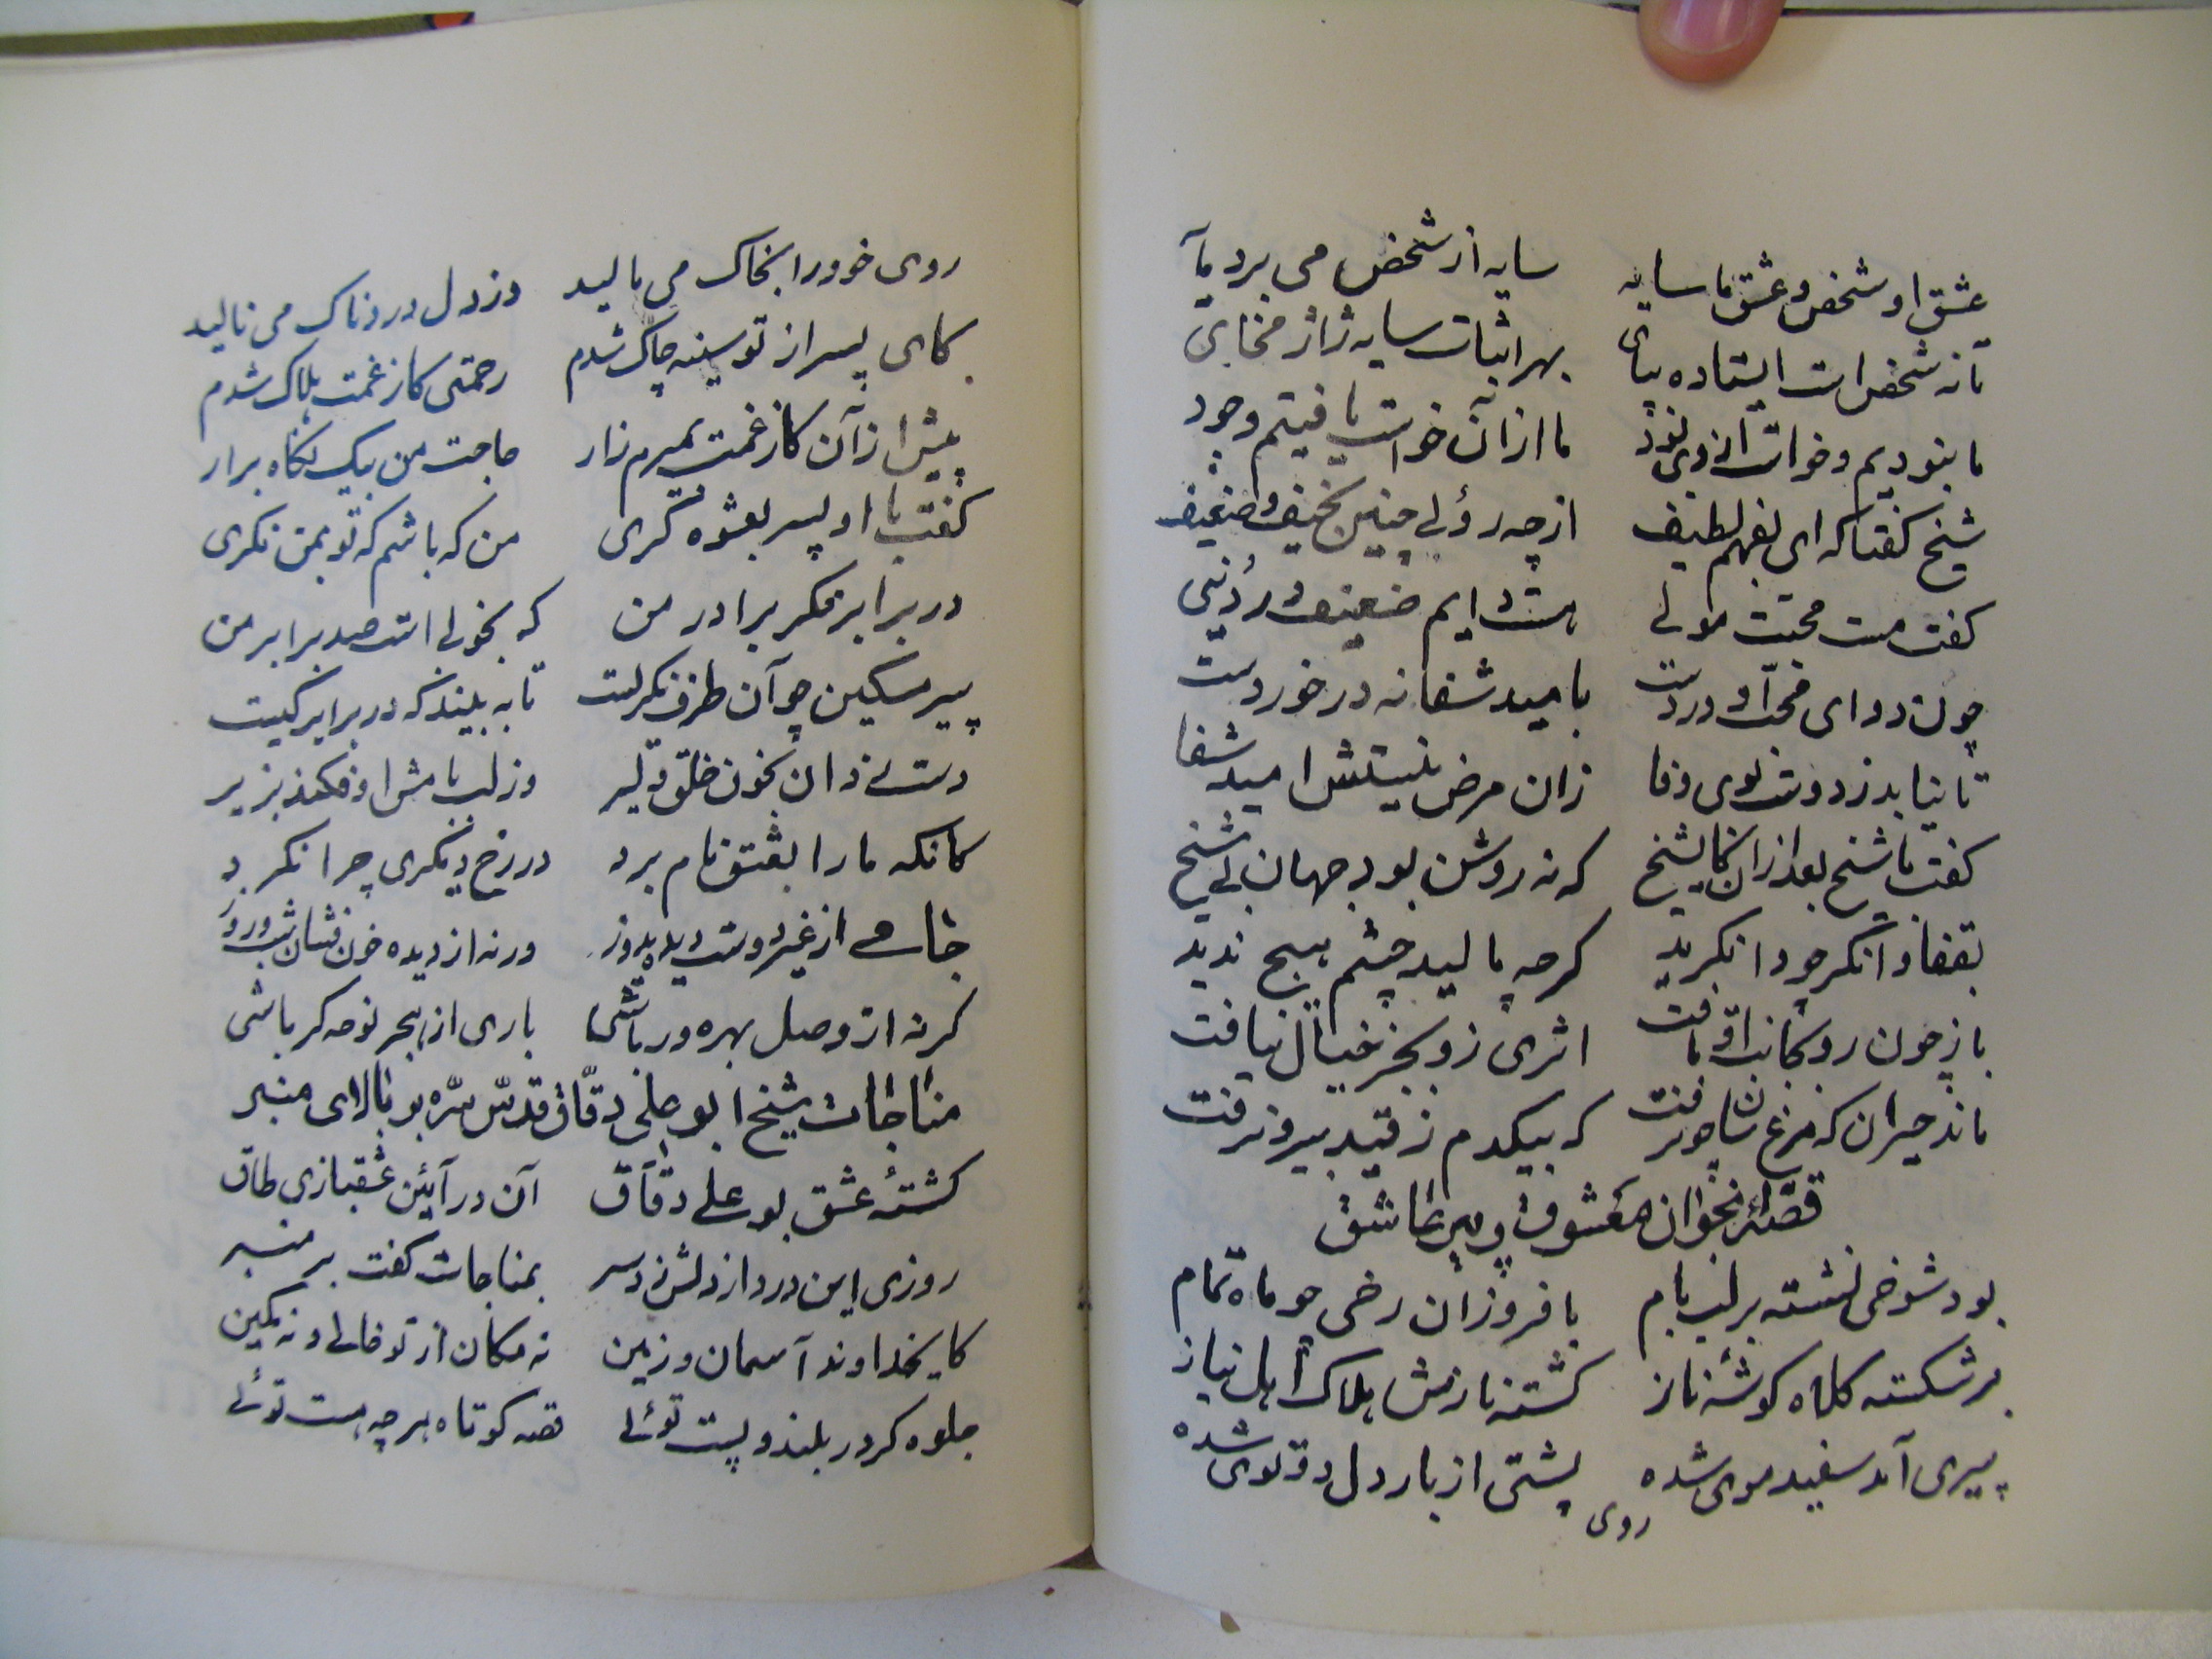 عشق او شخص و عشق ما سایه سایه از شخص می برد مآ
تا نه شخص است ایستاده بپای بهر اثبات سایه ژاژ مخای
ما نبودیم و خواست از وی بود ما ازان خواست یافتیم وجود
شیخ گفتا که ای بفهم لطیف از چه رو لی چنین نحیف و ضعیف
گفت مست محبت مولی هست دایم ضعیف در دنیی
چون دوای محب او دردست بامید شفا نه در خوردست
تا نیابد ز دوست بوی وفا زان مرض نیستش امید شفا
گفت با شیخ بعد ازان کای شیخ که نه روشن بود جهان بی شیخ
بقفا وانگر چو وانگرید گرچه مالید چشم هیچ ندید
باز چون رو بجانب او تافت اثری زو بجز خیال نیافت
ماند حیران که مرغ سان چون رفت که بیکدم ز قید بیرون رفت
قصهٔ نوجوان معشوق و پیر عاشق
بود شوخی نشسته بر لب بام با فروزان رخی چو ماه تمام
برشکسته کلاه گوشه ناز گشته نازش هلاک اهل نیاز
پیری آمد سفید موی شده پشتی از بار دل دو توی شده
روی
روی خود را بخاک می مالید وز دل دردناک می نالید
کای پسر از تو سینه چاک شدم رحمتی کز غمت هلاک شدم
پیش ازآن کز غمت بمیرم زار حاجت من بیک نگاه برار
گفت با او پسر بعشوه گری من که باشم که تو بمن نگری
در برابر نگر برادر من که بخوبی است صد برابر من
پیر مسکین چو آن طرف نگریست تا به بیند که در برابر کیست
دست زد ان بخون خلق دلیر وز لب بامش او فکند بزیر
کانکه ما را بعشق نام برد در رخ دیگری چرا نگرد
جامی از غیر دوست دیده بدوز ورنه از دیده خون فشان شب و روز
گر نه از وصل بهره ور باشی باری از هجر نوحه گر باشی
مناجات شیخ ابو علی دقاق قدّس سرّه بر بالای منبر
کشتهٔ عشق بو علی دقاق آن در آیین عشقبازی طاق
روزی این درد از دلش زد سر بمناجات گفت بر منبر
کای خداوند آسمان و زمین نه مکان از تو خالی و نه مکین
جلوه گر در بلند و پست توئی قصه کوتاه هر چه هست توئی